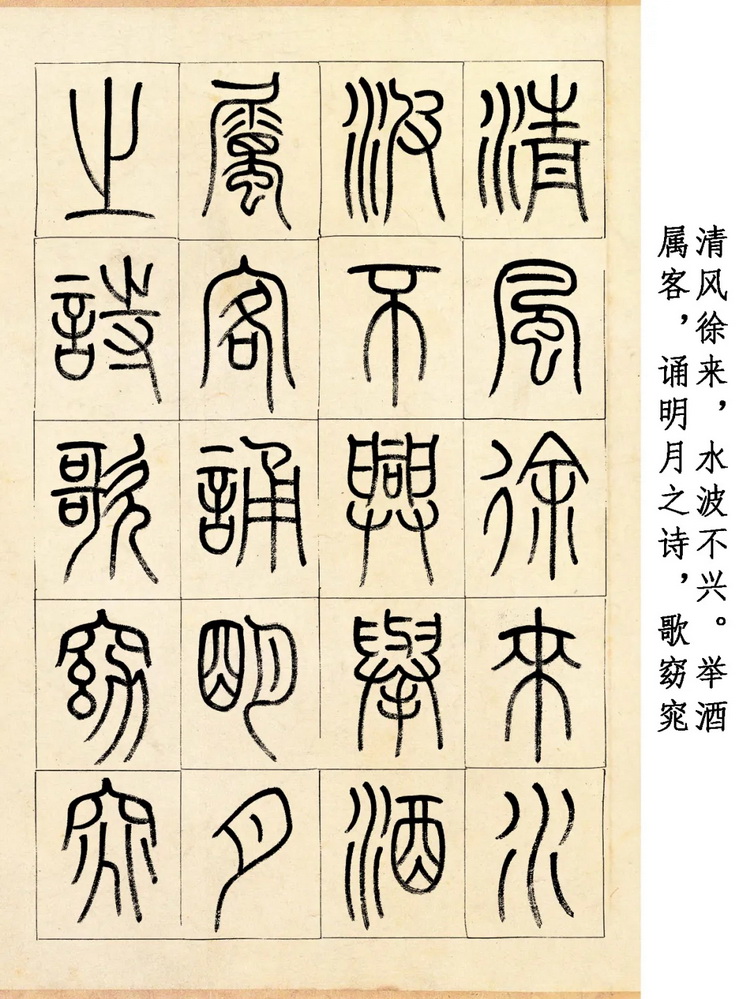 清風徐來水
波不興舉酒
屬客誦明月
之詩歌窈窕
清风徐来，水波不兴。举酒
属客，诵明月之诗，歌窈窕